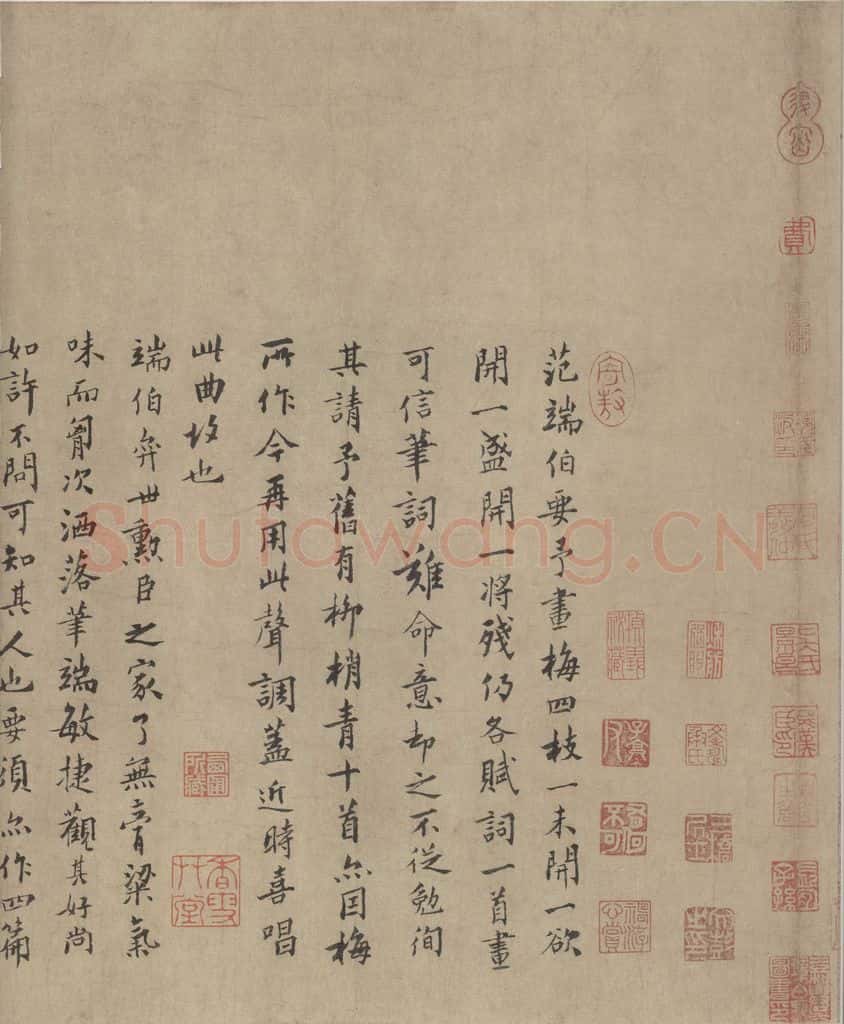 范端伯要予畫梅四枝一未開一欲
開一盛開一將殘仍各賦詞一首畫
可信筆詞難命意却之不從勉徇
其請予舊有柳梢青十首亦因梅
所作今再用此聲調蓋近時喜唱
此曲故也
端伯奕世勳臣之家了無膏粱氣
味而胸次洒落筆端敏捷觀其好尚
如許不問可知其人也要須亦作四篇
Shufawang.CN